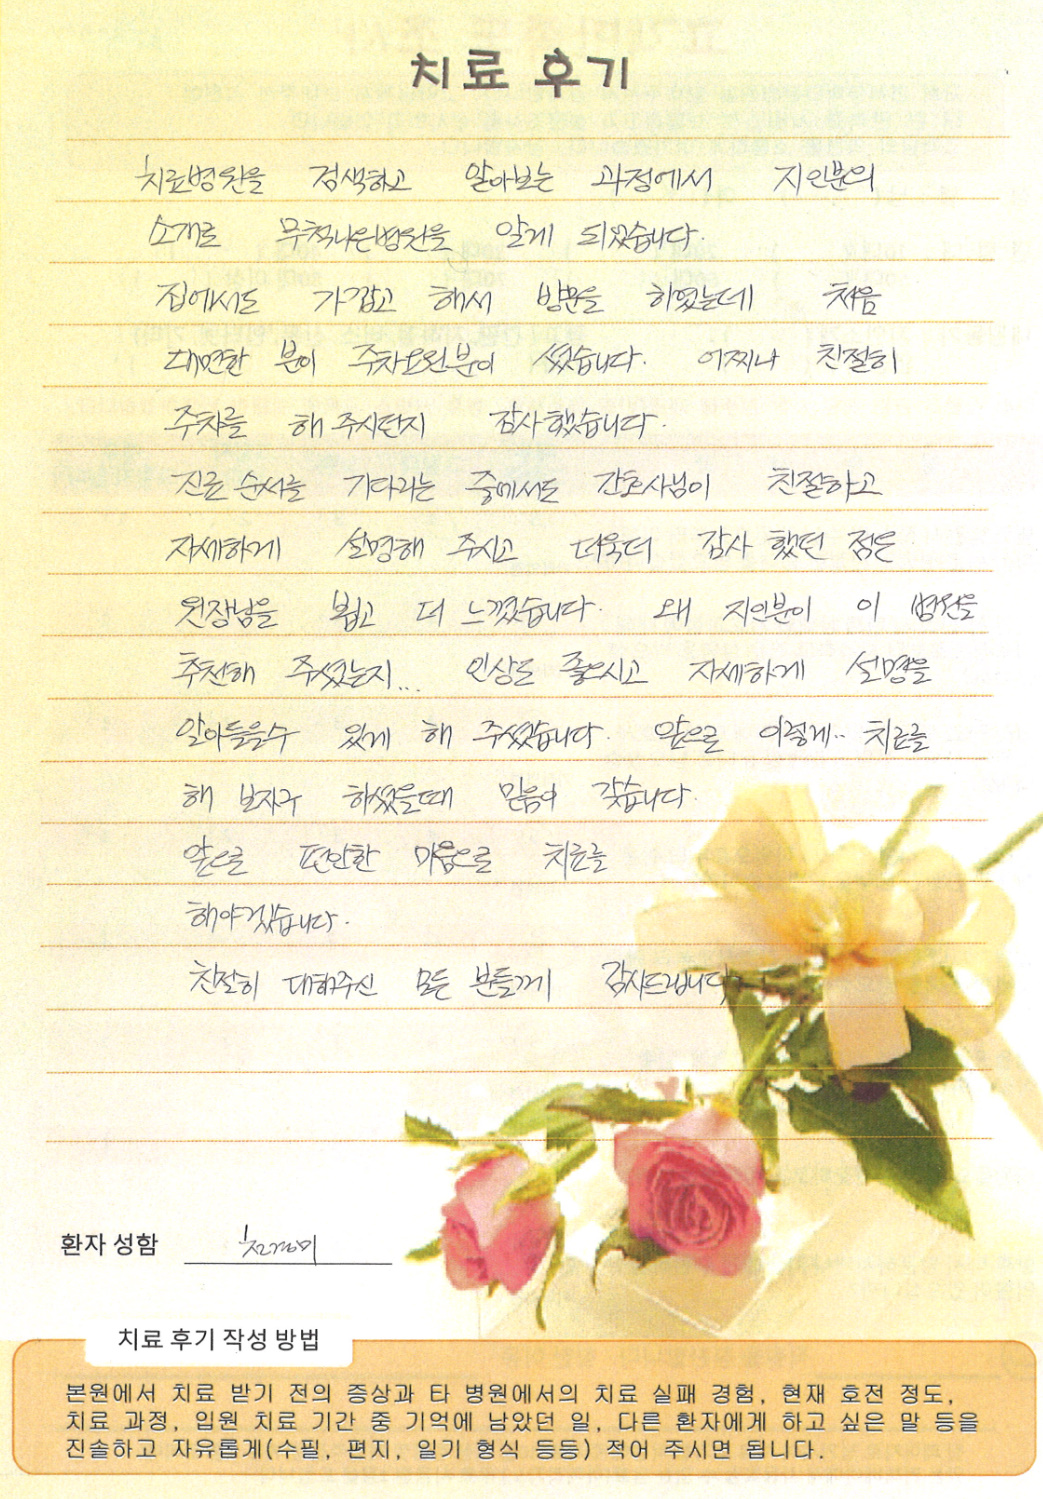 치료 후기
치료병원을 검색하고 알아보는 과정에서 지인분의
소개로 무척나은병원을 알게 되었습니다.
집에서도 가깝고 해서 방문을 하였는데 처음
대면한 분이 주차요원분이 셨습니다. 어찌나 친절히
주차를 해 주시던지 감사했습니다.
진료 순서를 기다리는 중에서도 간호사님이 친절하고
자세하게 설명해 주시고 더욱더 감사 했던 점은
원장님을 뵙고 더 느꼈습니다. 왜 지인분이 이 병원을
추천해 주셨는지... 인상도 좋으시고 자세하게 설명을
알아들을수 있게 해 주셨습니다. 앞으로 이렇게.. 치료를
해 보자구 하셨을때 믿음이 갔습니다.
앞으로 편안한 마음으로 치료를
해야겠습니다.
친절히 대해주신 모든 분들께 감사드립니다.
환자 성함
치료 후기 작성 방법
본원에서 치료 받기 전의 증상과 타 병원에서의 치료 실패 경험, 현재 호전 정도,
치료 과정, 입원 치료 기간 중 기억에 남았던 일, 다른 환자에게 하고 싶은 말 등을
진솔하고 자유롭게(수필, 편지, 일기 형식 등등) 적어 주시면 됩니다.